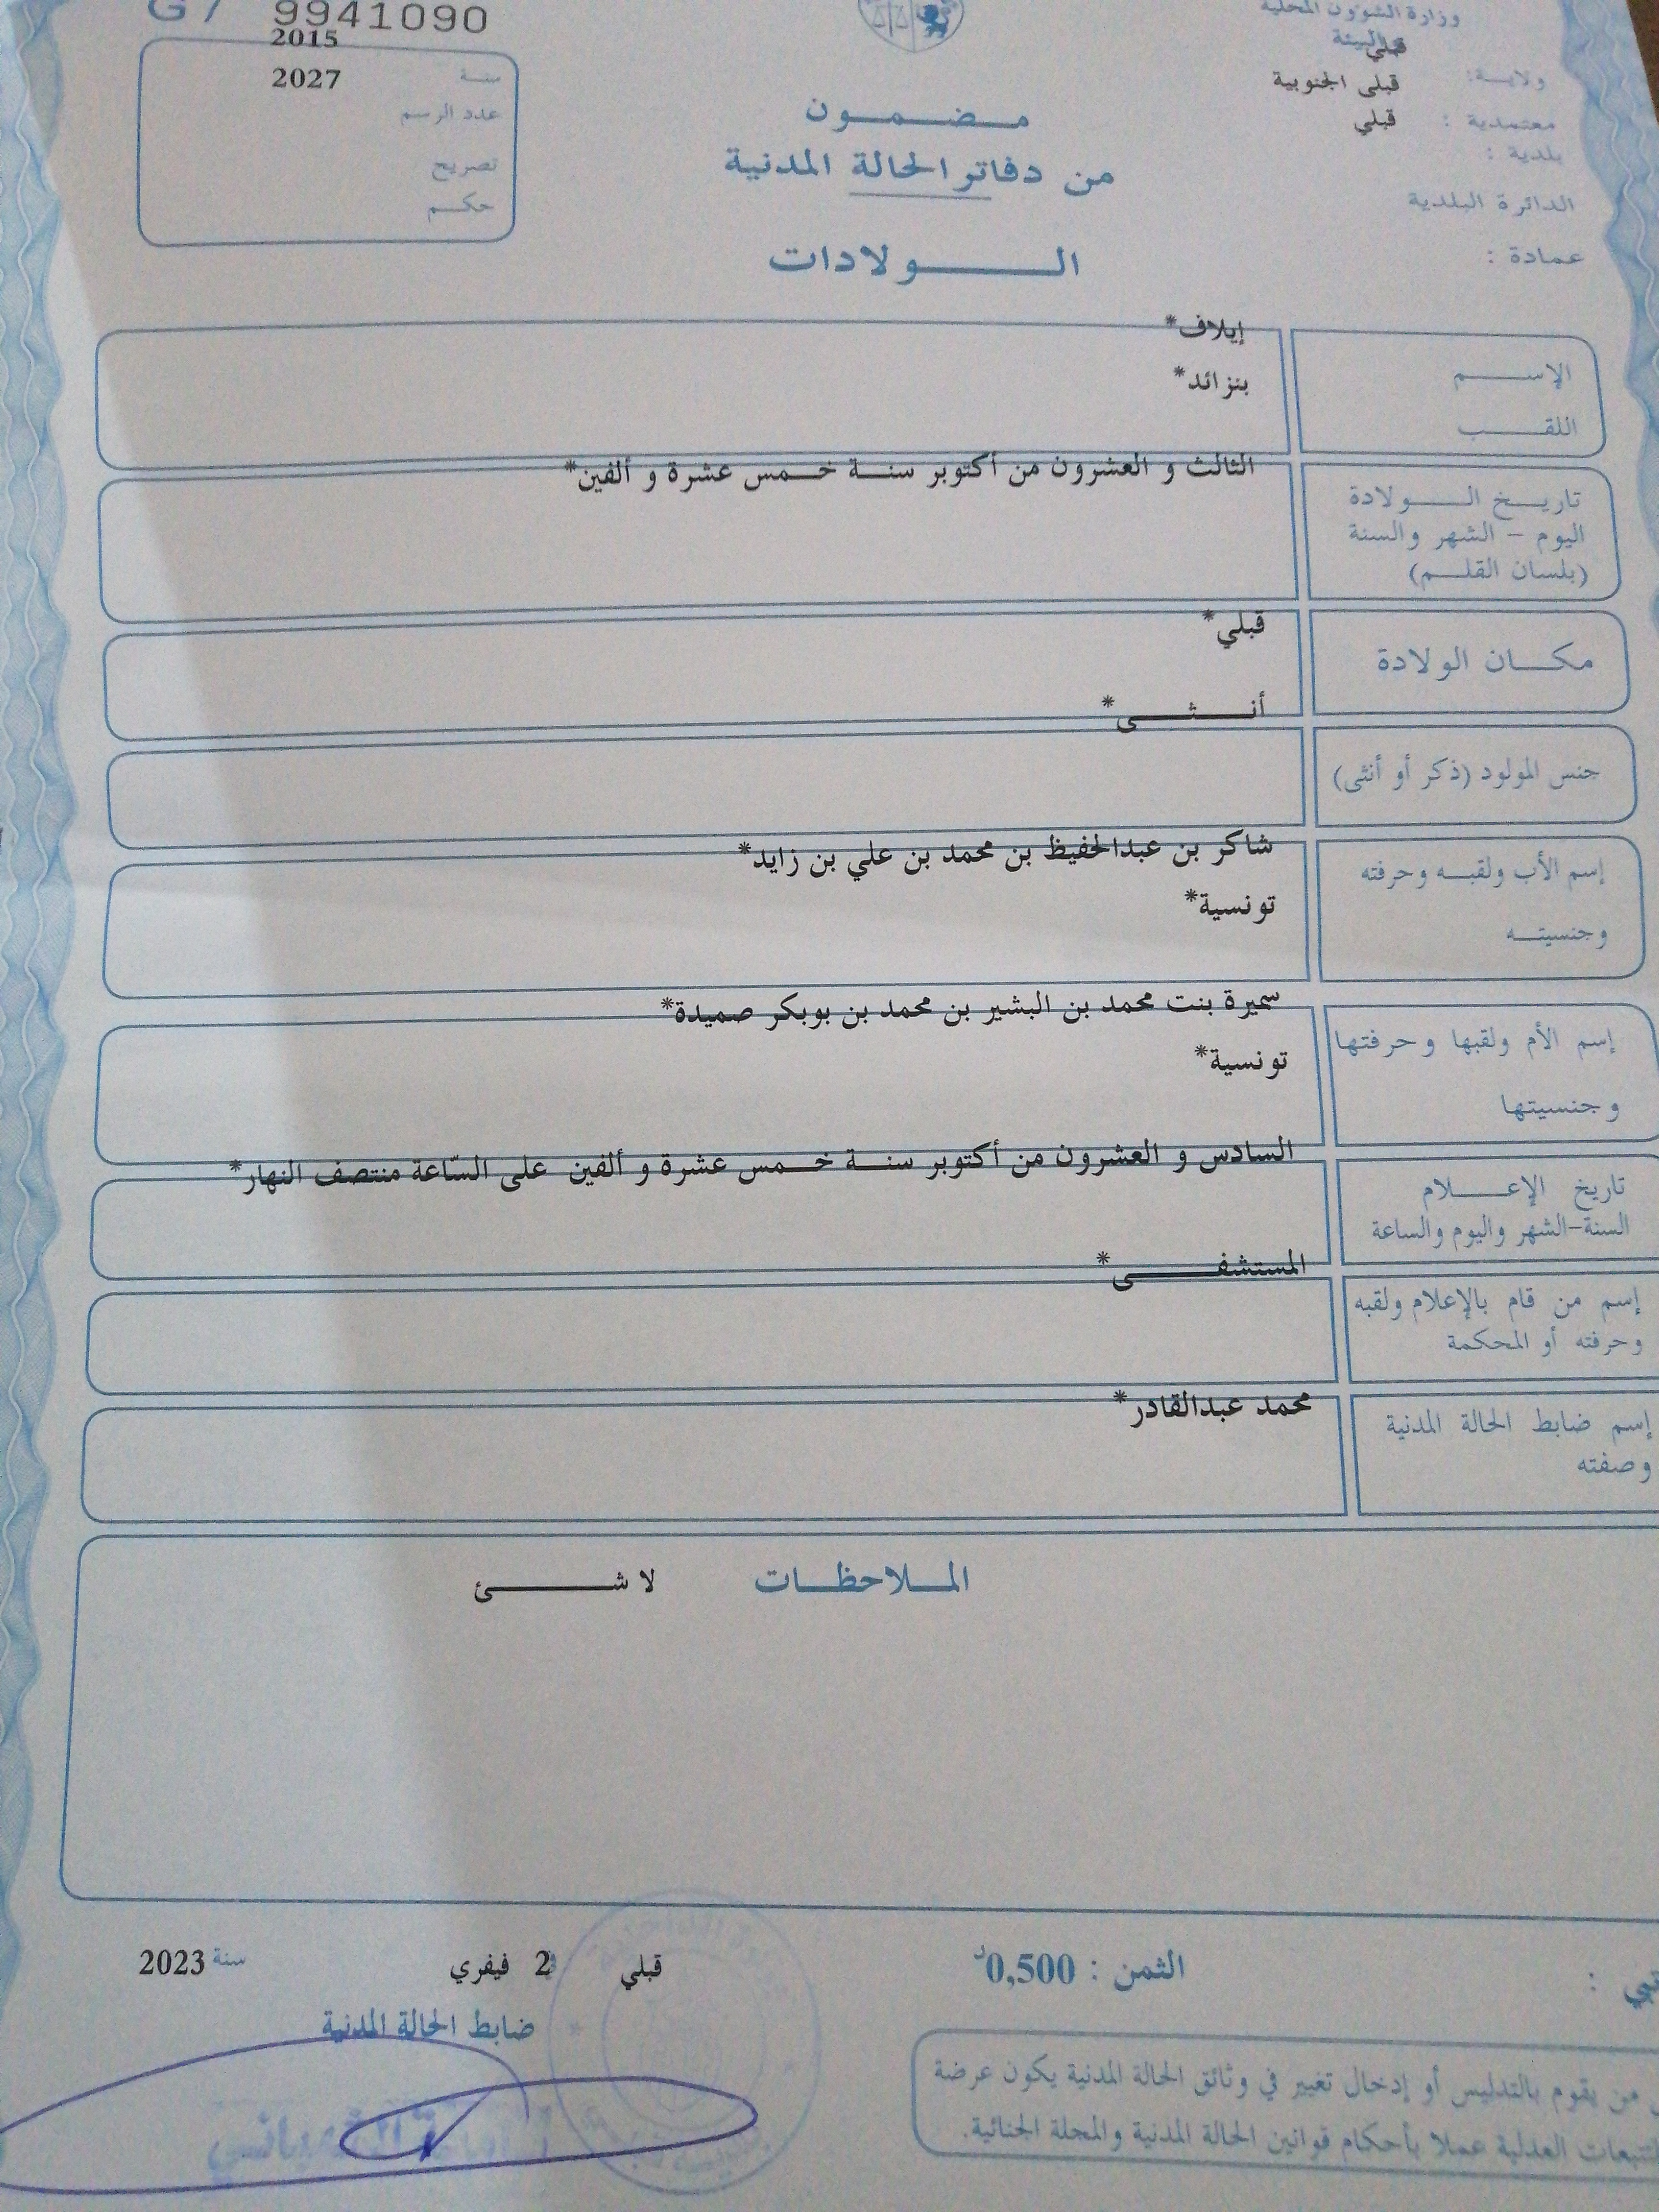 G7 9941090
2015
سنة
2027
عدد الرسم
تصريح
حكم
وزارة الشؤون المحلية
والبيئة
قبلي
ولاية:
قبلى الجنوبية
معتمدية :
قبلي
بلدية :
الدائرة البلدية
عمادة :
مضمون
من دفاتر الحالة المدنية
الولادات
إيلاف*
الإسم
بنزائد*
اللقب
الثالث و العشرون من أكتوبر سنة خمس عشرة و ألفين*
تاريخ الولادة
اليوم - الشهر والسنة
(بلسان القلم)
قبلي*
مكان الولادة
أنثى*
جنس المولود (ذكر أو أنثى)
شاكر بن عبدالحفيظ بن محمد بن علي بن زايد*
إسم الأب ولقبه وحرفته
تونسية*
وجنسيته
سميرة بنت محمد بن البشير بن محمد بن بوبكر صميدة*
إسم الأم ولقبها وحرفتها
تونسية*
وجنسيتها
السادس و العشرون من أكتوبر سنة خمس عشرة و ألفين على السّاعة منتصف النهار*
تاريخ الإعلام
السنة-الشهر واليوم والساعة
المستشفى*
إسم من قام بالإعلام ولقبه
وحرفته أو المحكمة
محمد عبدالقادر*
إسم ضابط الحالة المدنية
وصفته
الملاحظات لا شئ
الثمن : 0,500د
قبلي 2 فيفري سنة 2023
ضابط الحالة المدنية
من يقوم بالتدليس أو إدخال تغيير في وثائق الحالة المدنية يكون عرضة
للتتبعات العدلية عملا بأحكام قوانين الحالة المدنية والمجلة الجنائية.